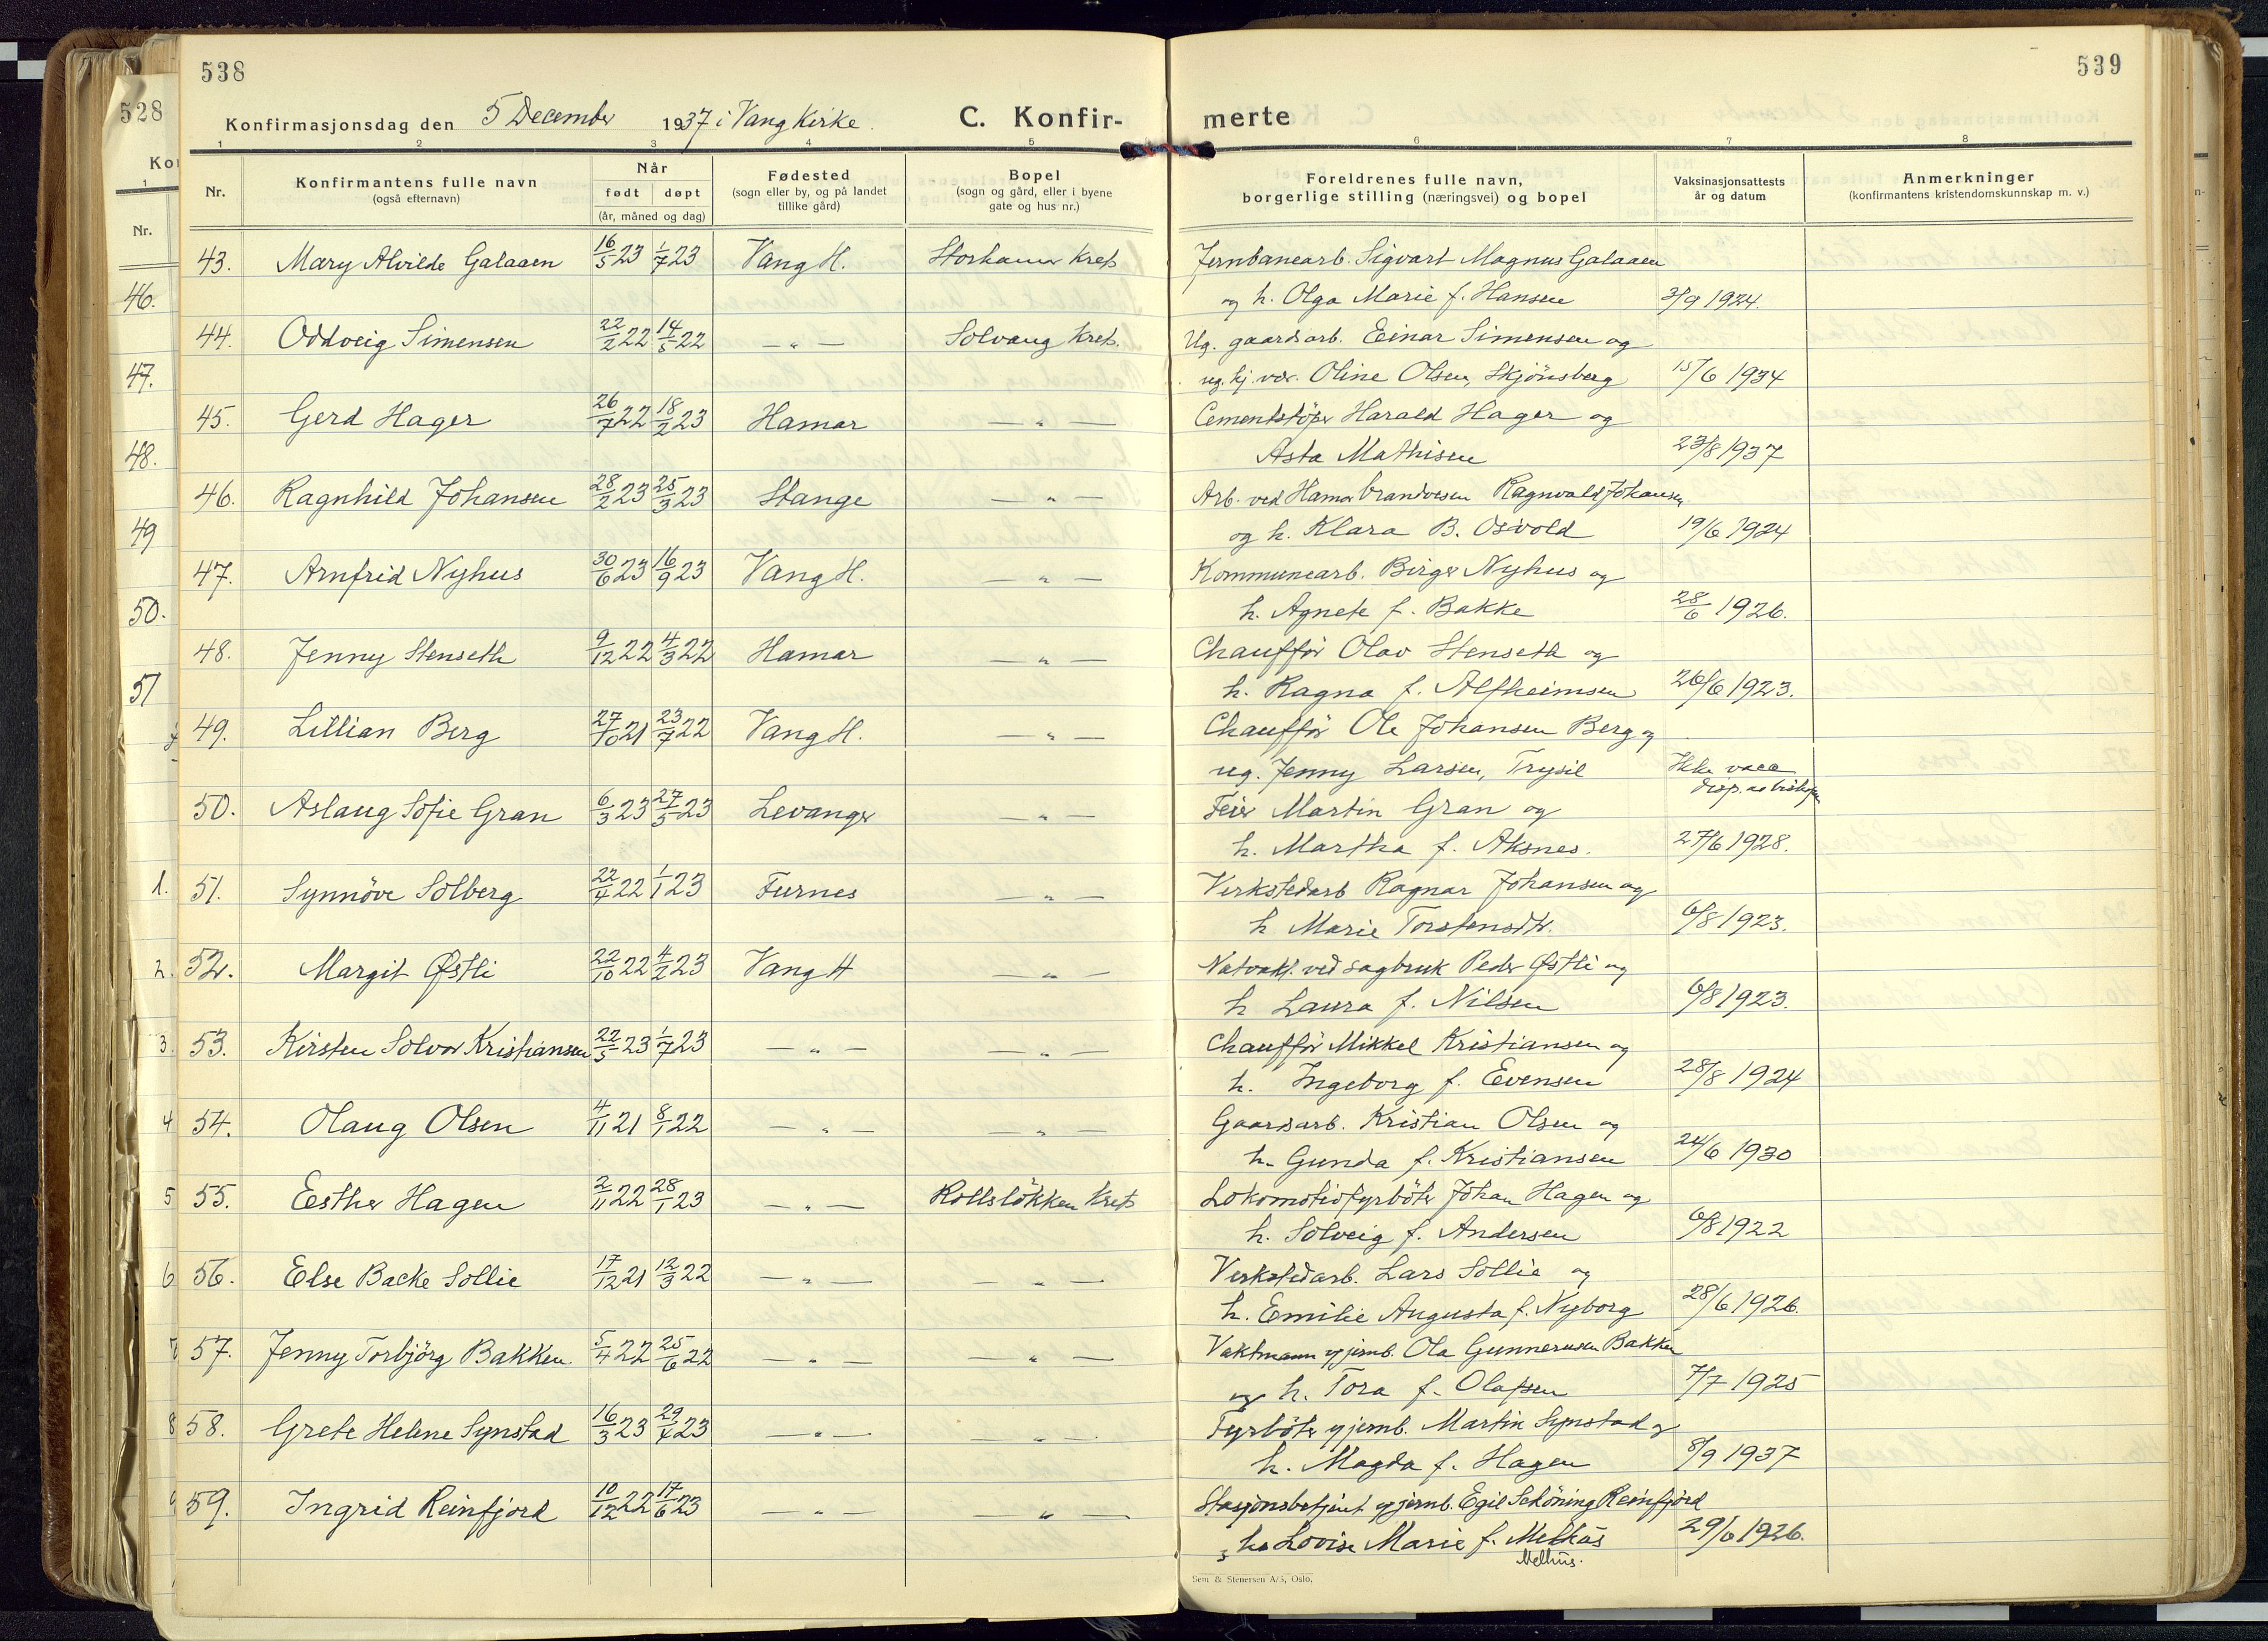 538
539
528
Konfirmasjonsdag den 5 December 1937 i Vang Kirke.
C. Konfir-
merte
1 2 3 4 5 6 7 8
Nr.
Konfirmantens fulle navn
(også efternavn)
Når
født døpt
(år, måned og dag)
Fødested
(sogn eller by, og på landet
tillike gård)
Bopel
(sogn og gård, eller i byene
gate og hus nr.)
Foreldrenes fulle navn,
borgerlige stilling (næringsvei) og bopel
Vaksinasjonsattests
år og datum
Anmerkninger
(konfirmantens kristendomskunnskap m. v.)
43. Mary Alvilde Galaaen 16/5 23 1/7 23 Vang H. Storhamar Krets Jernbanearb. Sigvart Magnus Galaaen
og h. Olga Marie f. Hansen 3/9 1924.
44. Oddveig Simensen 22/2 22 14/5 22 — " — Solvang Krets. Ug. gaardsarb. Einar Simensen og
ug. hj. vær. Oline Olsen, Skjönsberg 15/6 1934
45. Gerd Hager 26/7 22 18/2 23 Hamar — " — Cementstöper Harald Hager og
Asta Mathisen 23/8 1937
46. Ragnhild Johansen 28/2 23 25/3 23 Stange — " — Arb. ved Hamar brandvesen Ragnvald Johansen
og h. Klara B. Osvold 19/6 1924
47. Arnfrid Nyhus 30/6 23 16/9 23 Vang H. — " — Kommunearb. Birger Nyhus og
h. Agnete f. Bakke 28/6 1926.
48. Jenny Stenseth 9/12 22 4/3 22 Hamar — " — Chaufför Olav Stenseth og
h. Ragna f. Alfheimsen 26/6 1923.
49. Lillian Berg 27/10 21 23/7 22 Vang H. — " — Chaufför Ole Johansen Berg og
ug. Jenny Larsen, Trysil Ikke vacc
disp. av biskopen
50. Aslaug Sofie Gran 6/3 23 27/5 23 Levanger — " — Feier Martin Gran og
h. Martha f. Aksnes. 27/6 1928.
51. Synnöve Solberg 22/4 22 1/1 23 Furnes — " — Verkstedarb Ragnar Johansen og
h Marie Torstensdtr. 6/8 1923.
52. Margit Østli 22/10 22 4/2 23 Vang H — " — Natvakt. ved sagbruk Peder Østli og
h Laura f. Nilsen 6/8 1923.
53. Kirsten Solvor Kristiansen 22/5 23 1/7 23 — " — — " — Chaufför Mikkel Kristiansen og
h. Ingeborg f. Evensen 28/8 1924
54. Olaug Olsen 4/11 21 8/1 22 — " — — " — Gaardsarb. Kristian Olsen og
h. Gunda f. Kristiansen 24/6 1930
55. Esther Hagen 2/11 22 28/1 23 — " — Rollslökken Krets Lokomotivfyrböter Johan Hagen og
h. Solveig f. Andersen 6/8 1922
56. Else Backe Sollie 17/12 21 12/3 22 — " — — " — Verkstedarb. Lars Sollie og
h. Emilie Augusta f. Nyborg 28/6 1926.
57. Jenny Torbjörg Bakken. 5/4 22 25/6 22 — " — — " — Vaktmann v jernb. Ola Gunnerusen Bakken
og h. Tora f. Olafsen 7/7 1925
58. Grete Helene Synstad 16/3 23 29/4 23 — " — — " — Fyrböter v jernb. Martin Synstad og
h. Magda f. Hagen 8/9 1937
59. Ingrid Reinfjord 10/12 22 17/6 23 — " — — " — Stasjonsbetjent v jernb. Egil Schöning Reinfjord
h Lovise Marie f. Melhus 29/6 1926.
Melhus.
Sem & Stenersen A/S, Oslo.
Kon
1
Nr.
46.
47.
48.
49
50.
51
1.
2.
3.
4
5
6
8